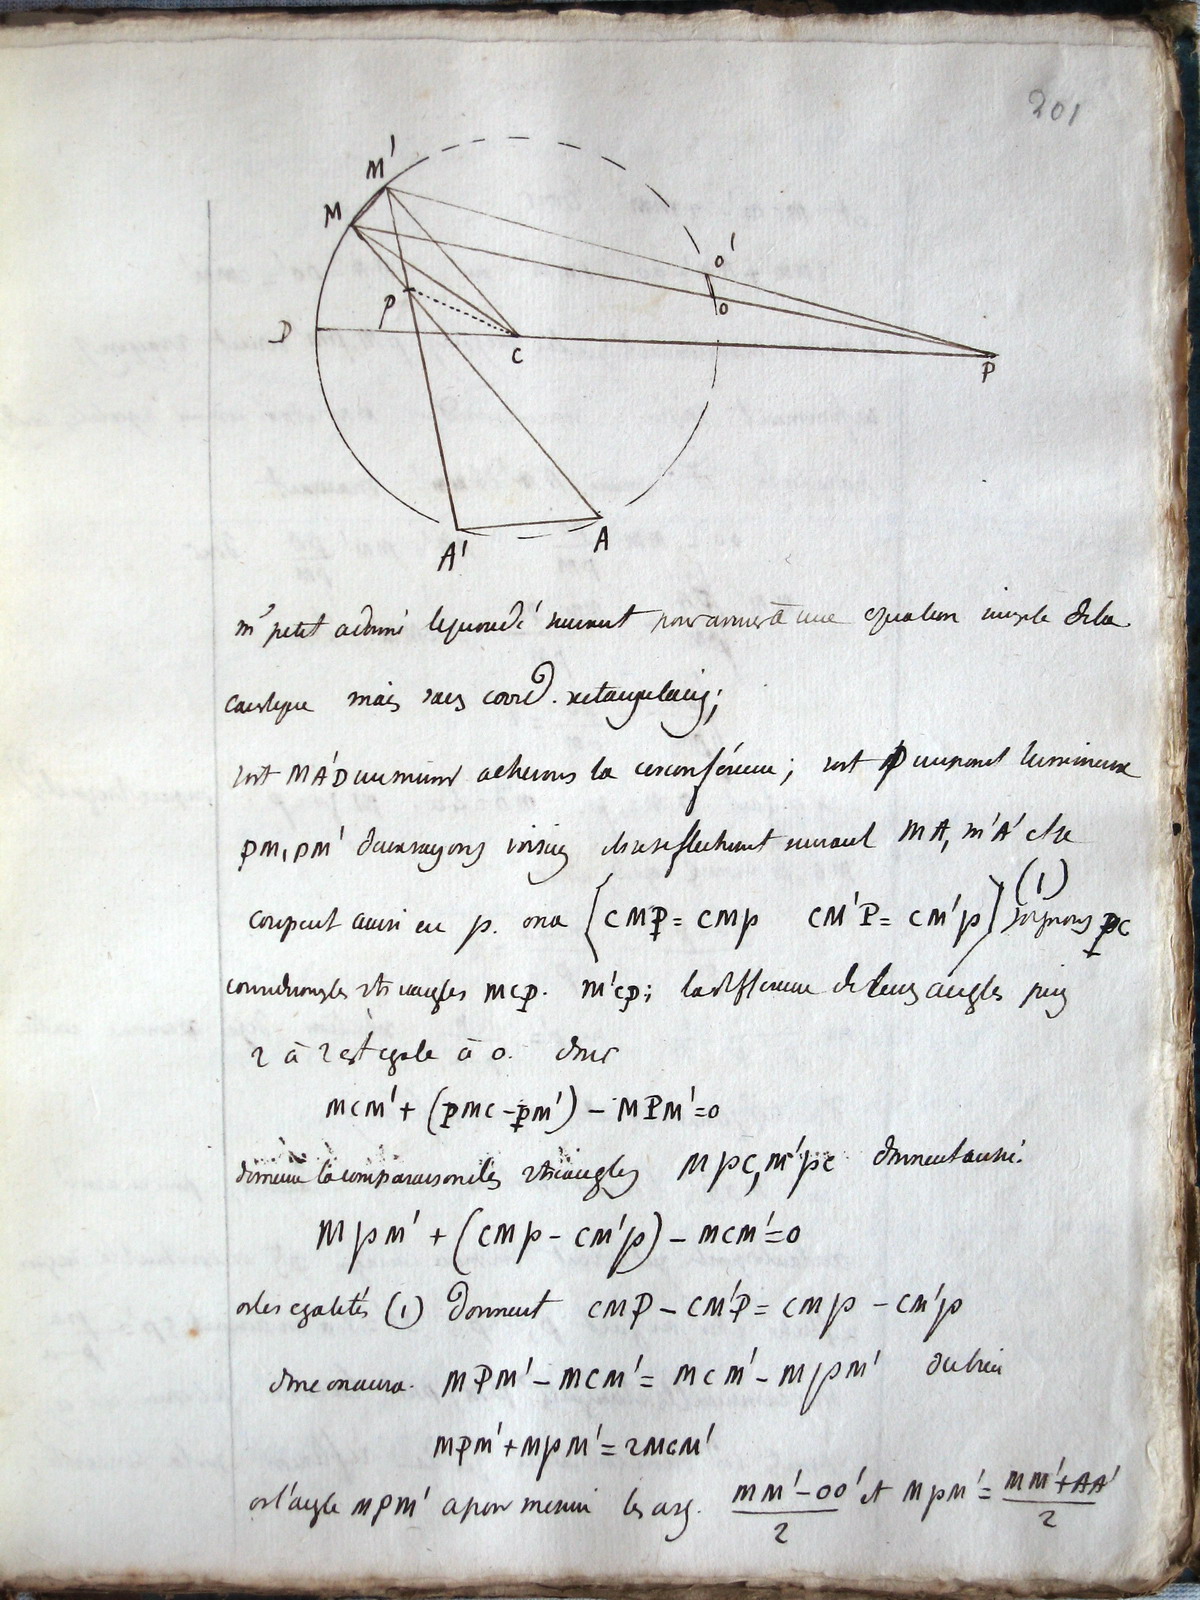 201
M'
M
O'
O
P
D
C
P
A'
A
mr petit a donné le procédé suivant pour arriver à une equation simple de la
caustique mais sans coord. rectangulaires;
soit MA'D un miroir achevons la circonférence; soit P un point lumineux
PM, PM' deux rayons voisins ils se reflechiront suivant MA, M'A' et se
coupent aussi en p. on a (CMP = CMp CM'P = CM'p) (1) joignons pC
considerons les 2 triangles MCP. M'CP; la difference de leurs angles pris
2 à 2 est egale à 0. donc
MCM' + (PMC - PM') - MPM' = 0
de meme la comparaison des 2 triangles MpC, M'pC donneut aussi.
MpM' + (CMp - CM'p) - MCM' = 0
or les egalités (1) donnent CMP - CM'P = CMp - CM'p
donc on aura. MPM' - MCM' = MCM' - MpM' ou bien
MPM' + MpM' = 2MCM'
or l'angle MPM' a pour mesure les arcs. MM' - OO' / 2 et MpM' = MM' + AA' / 2